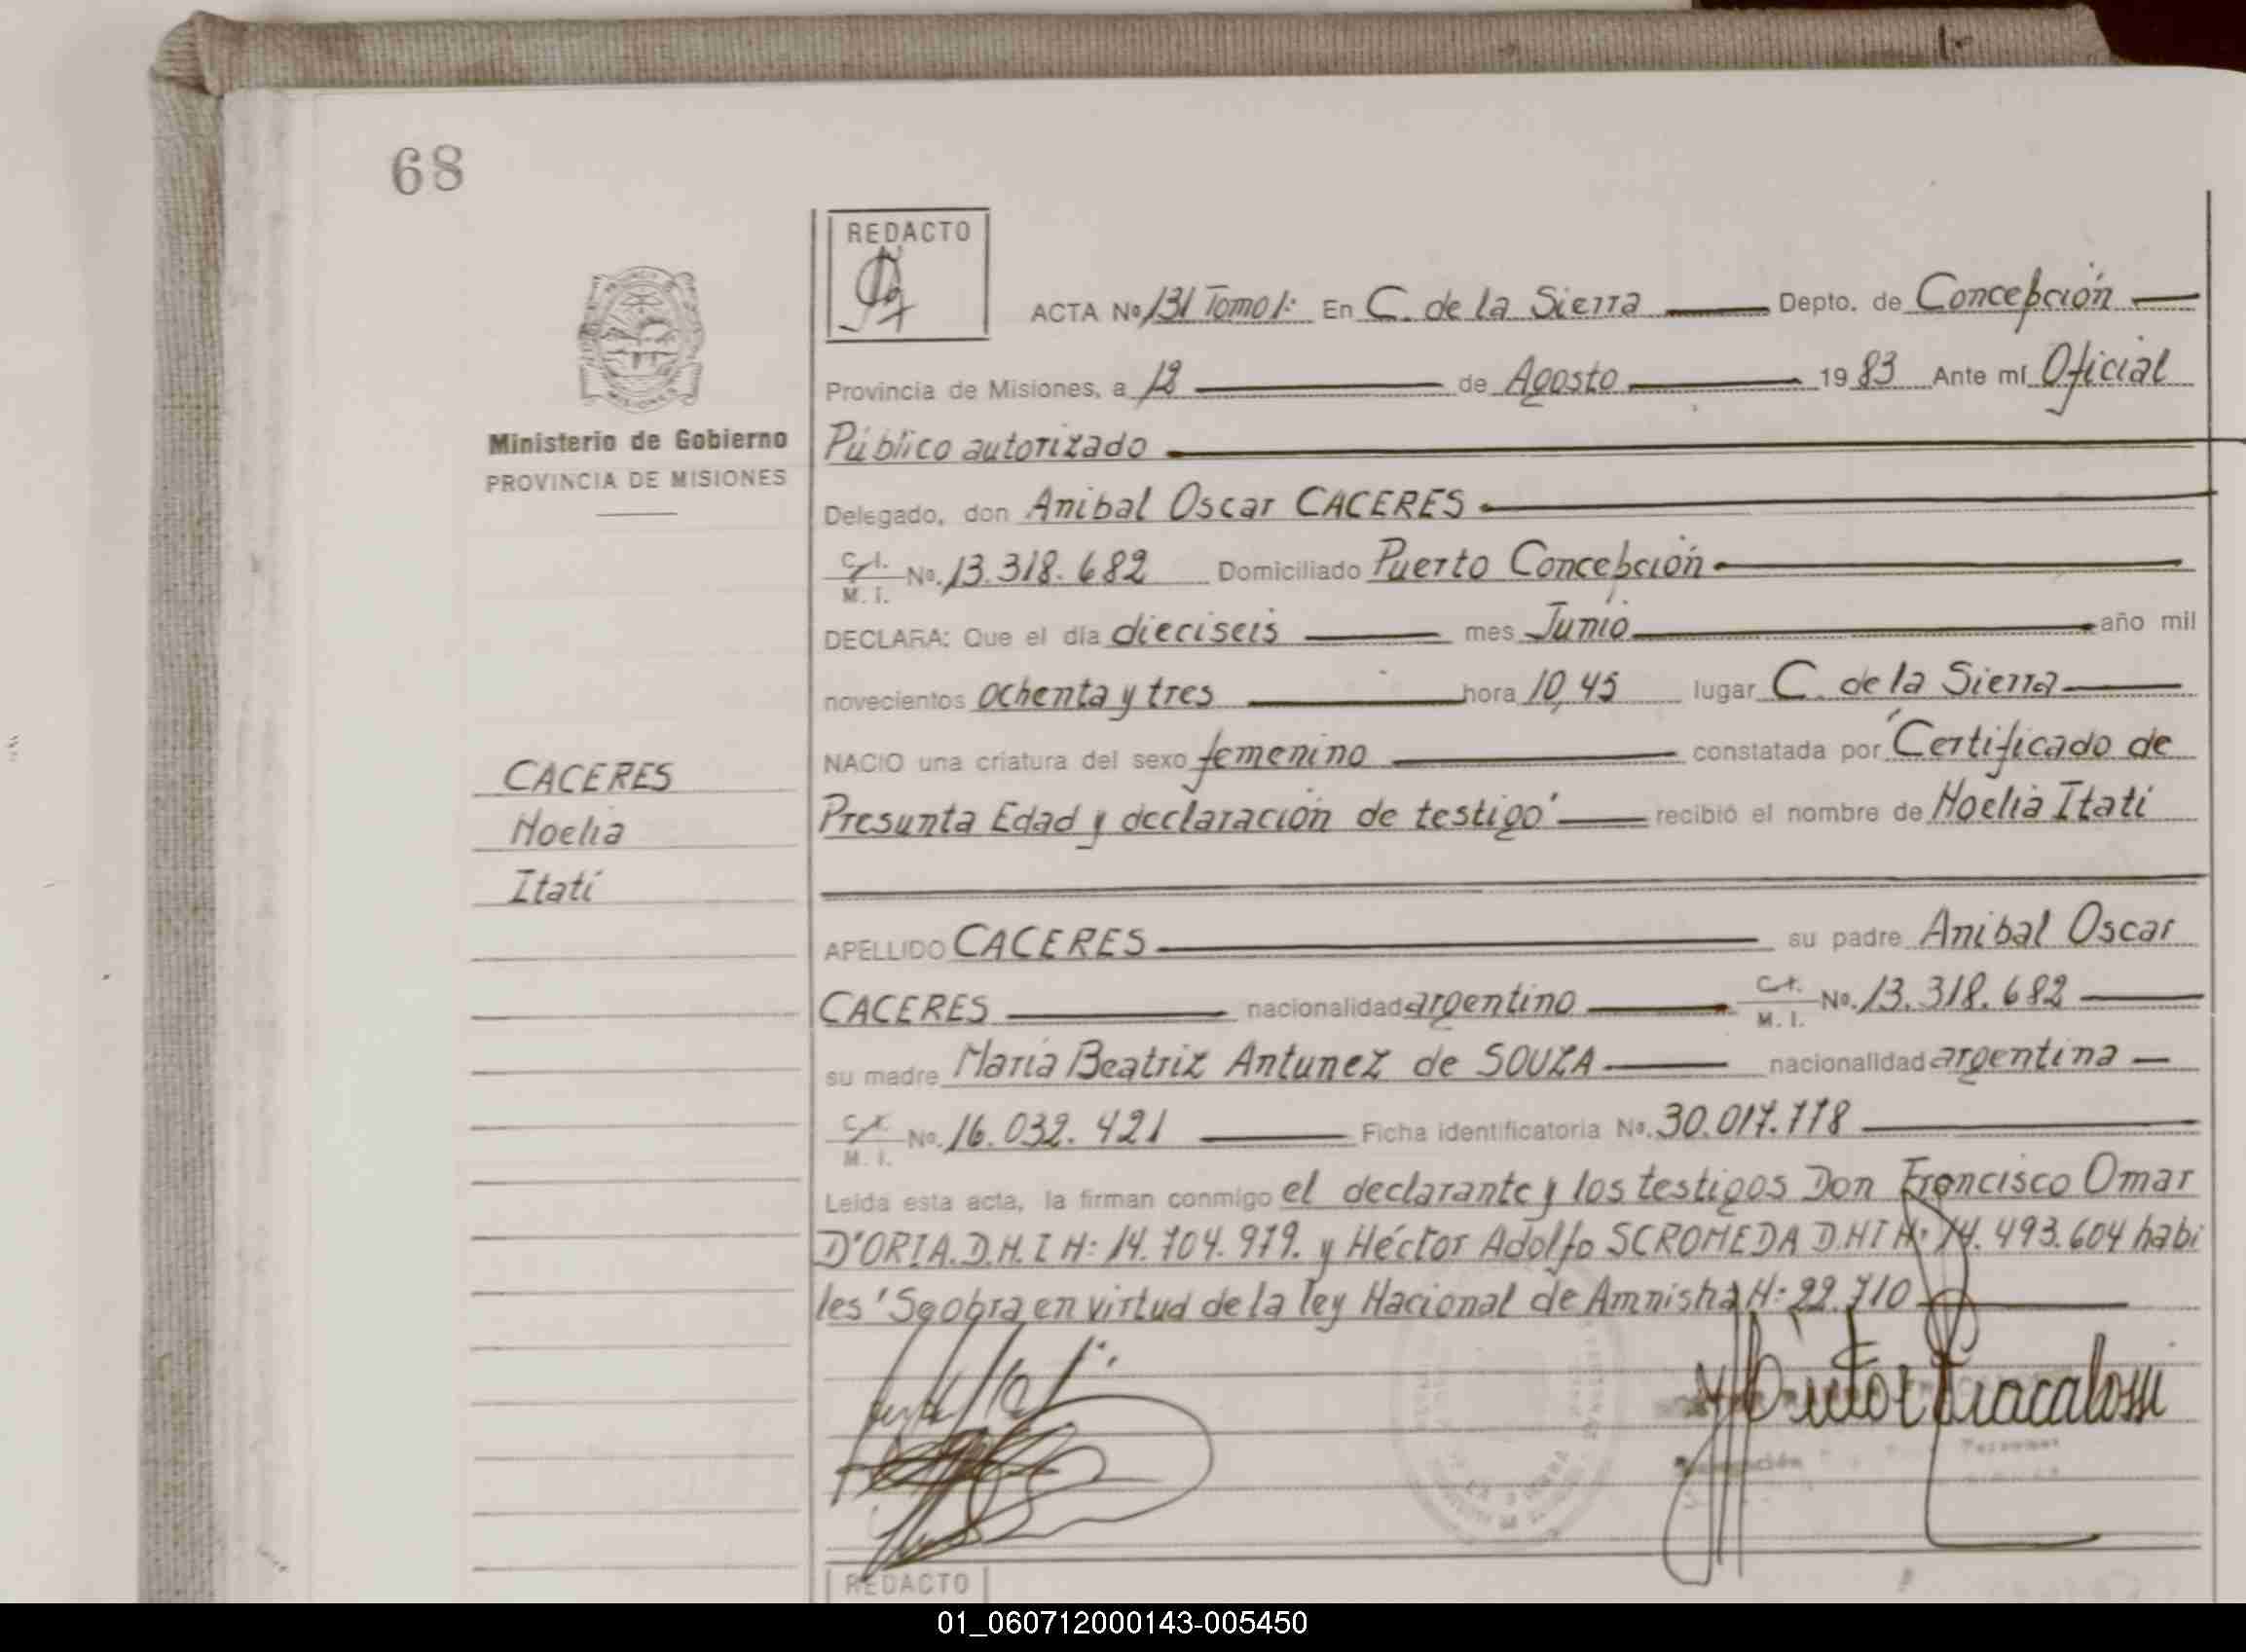 68
REDACTO
ACTA No 131 Tomo I: En C. de la Sierra Depto. de Concepción
Provincia de Misiones, a 12 de Agosto 1983 Ante mí Oficial
Público autorizado
Ministerio de Gobierno
PROVINCIA DE MISIONES
Delegado, don Anibal Oscar CACERES
C. I. M. I. No. 13.318.682 Domiciliado Puerto Concepción
DECLARA: Que el día dieciseis mes Junio año mil
novecientos ochenta y tres hora 10,45 lugar C. de la Sierra
NACIO una criatura del sexo femenino constatada por "Certificado de
Presunta Edad y declaración de testigo" recibió el nombre de Noelia Itatí
CACERES
Noelia
Itatí
APELLIDO CACERES su padre Anibal Oscar
CACERES nacionalidad argentino C. I. M. I. No. 13.318.682
su madre María Beatriz Antunez de SOUZA nacionalidad argentina
C. I. M. I. No. 16.032.421 Ficha identificatoria No. 30.017.778
Leida esta acta, la firman conmigo el declarante y los testigos Don Francisco Omar
D'ORIA. D.N.I N: 14.704.979. y Héctor Adolfo SCROMEDA D.N.I N: 14.493.604 habi
les "Se obra en virtud de la ley Nacional de Amnistía N: 22.710
REDACTO
01_060712000143-005450